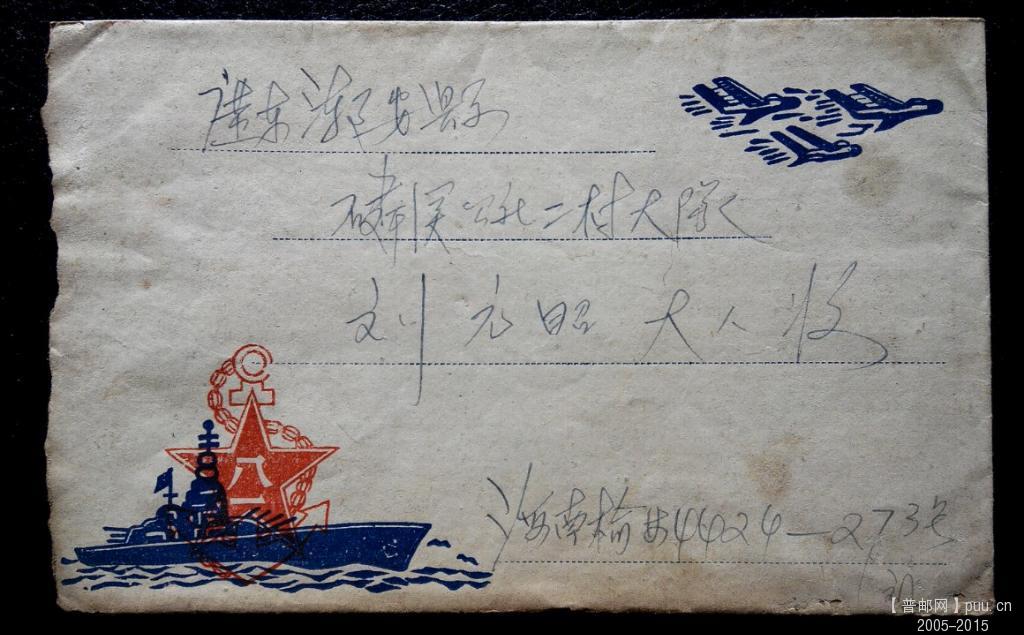 廣东潮安县
磷溪公社二村大隊
刘元昭大人收
八一
海南榆林4424—273号
【普邮网】puu.cn
2005-2015